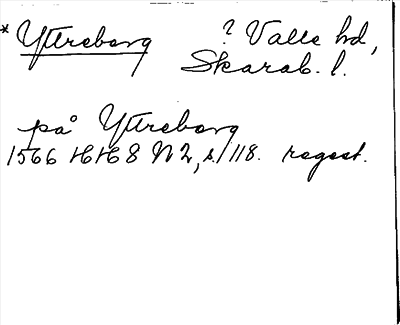 * Yttreborg ? Valle hd,
Skarab. l.
på Yttreborg
1566 HH 8 N 2, s. 118. regest.